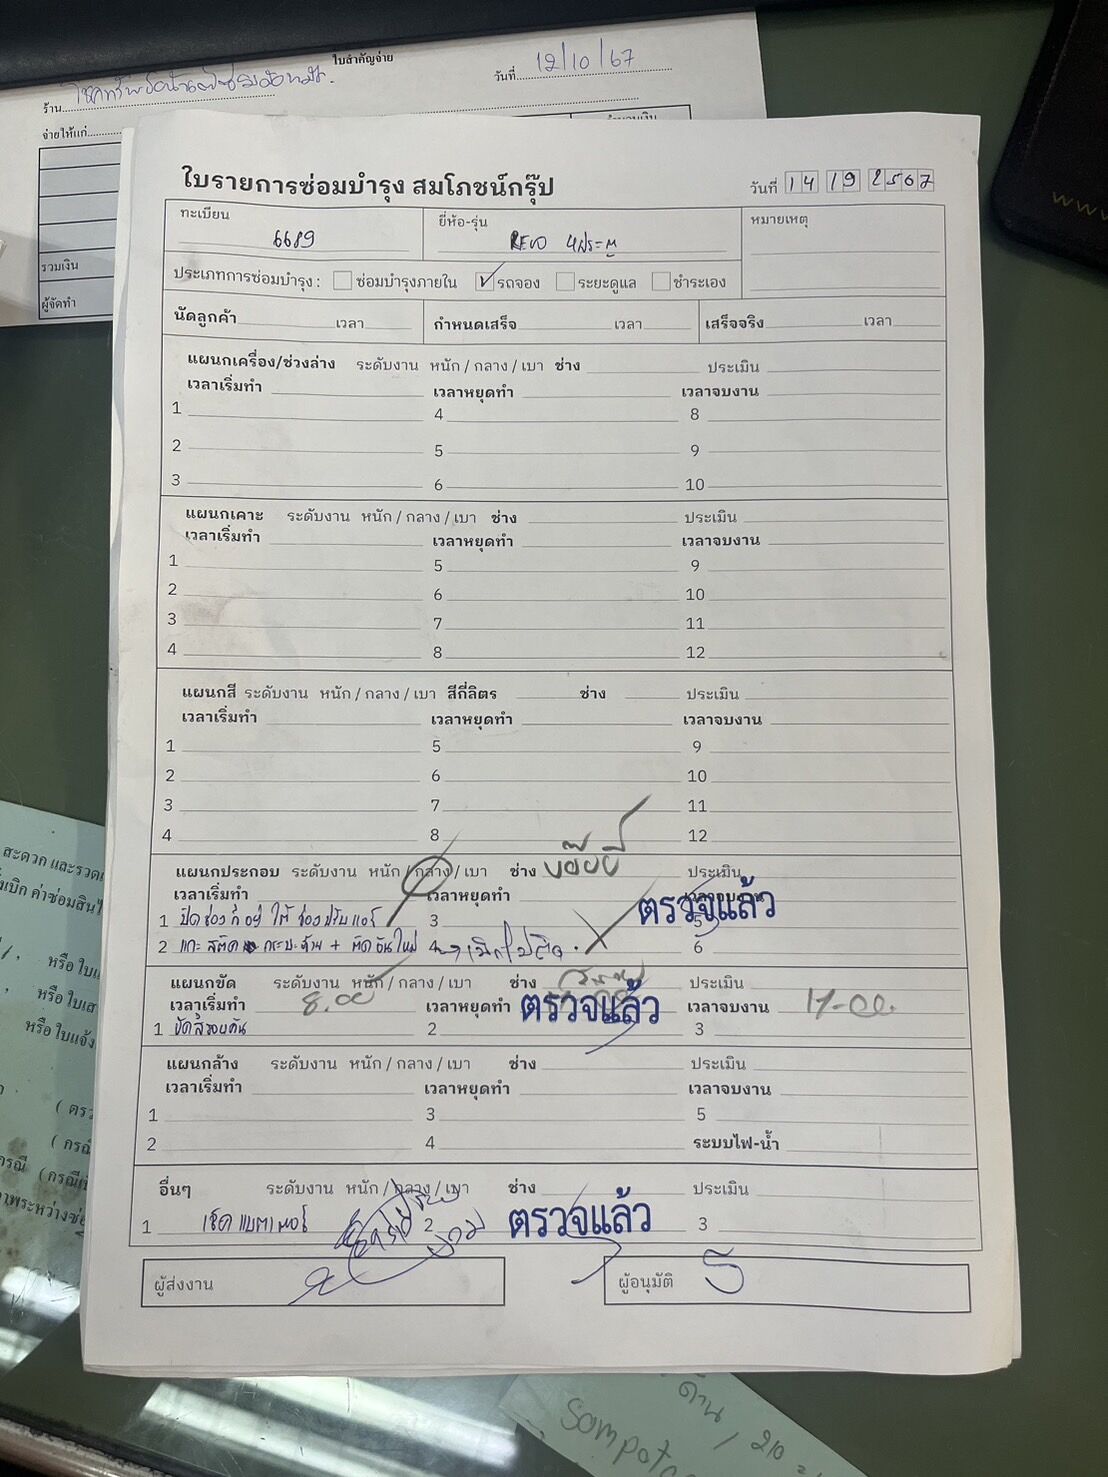 ใบสำคัญจ่าย
ร้าน
วันที่ 12/10/67
จ่ายให้แก่
จำนวนเงิน
รวมเงิน
ผู้จัดทำ
ใบรายการซ่อมบำรุง สมโภชน์กรุ๊ป
วันที่ 14 19 2567
ทะเบียน 6689
ยี่ห้อ-รุ่น REVO 4ประตู
หมายเหตุ
ประเภทการซ่อมบำรุง : ซ่อมบำรุงภายใน รถจอง ระยะดูแล ชำระเอง
นัดลูกค้า เวลา กำหนดเสร็จ เวลา เสร็จจริง เวลา
แผนกเครื่อง/ช่วงล่าง ระดับงาน หนัก / กลาง / เบา ช่าง ประเมิน
เวลาเริ่มทำ เวลาหยุดทำ เวลาจบงาน
1 4 8
2 5 9
3 6 10
แผนกเคาะ ระดับงาน หนัก / กลาง / เบา ช่าง ประเมิน
เวลาเริ่มทำ เวลาหยุดทำ เวลาจบงาน
1 5 9
2 6 10
3 7 11
4 8 12
แผนกสี ระดับงาน หนัก / กลาง / เบา สีกี่ลิตร ช่าง ประเมิน
เวลาเริ่มทำ เวลาหยุดทำ เวลาจบงาน
1 5 9
2 6 10
3 7 11
4 8 12
แผนกประกอบ ระดับงาน หนัก / กลาง / เบา ช่าง ประเมิน
เวลาเริ่มทำ เวลาหยุดทำ เวลาจบงาน
ตรวจแล้ว
1 ใต้ ช่องปรับแอร์ 3 5
2 แกะ สติ๊ก กระบะท้าย + ติดอันใหม่ 4 6
แผนกขัด ระดับงาน หนัก / กลาง / เบา ช่าง ประเมิน
เวลาเริ่มทำ 8.00 เวลาหยุดทำ ตรวจแล้ว เวลาจบงาน 17-00.
1 ขัดสีรอบคัน 2 3
แผนกล้าง ระดับงาน หนัก / กลาง / เบา ช่าง ประเมิน
เวลาเริ่มทำ เวลาหยุดทำ เวลาจบงาน
1 3 5
2 4 ระบบไฟ-น้ำ
อื่นๆ ระดับงาน หนัก / กลาง / เบา ช่าง ประเมิน
1 เช็ดแบตเตอร์รี่ 2 ตรวจแล้ว 3
ผู้ส่งงาน
ผู้อนุมัติ
สะดวก และรวดเ
หรือ ใบแ
หรือ ใบเส
หรือ ใบแจ้ง
( ตรว
( กรณี